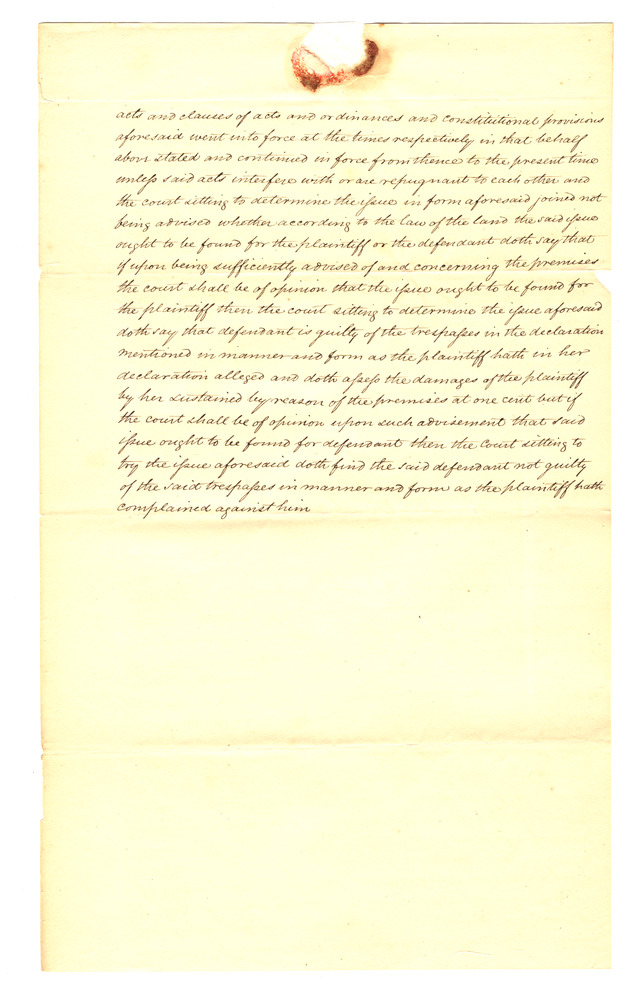 acts and clauses of acts and ordinances and constitutional provisions
aforesaid went into force at the times respectively in that behalf
above stated and continued in force from thence to the present time
unless said acts interfere with or are repugnant to each other and
the court sitting to determine the issue in form aforesaid joined not
being advised whether according to the law of the land the said issue
ought to be found for the plaintiff or the defendant doth say that
if upon being sufficiently advised of and concerning the premises
the court shall be of opinion that the issue ought to be found for
the plaintiff then the court sitting to determine the issue aforesaid
doth say that defendant is guilty of the trespasses in the declaration
mentioned in manner and form as the plaintiff hath in her
declaration alleged and doth assess the damages of the plaintiff
by her sustained by reason of the premises at one cent but if
the court shall be of opinion upon such advisement that said
issue ought to be found for defendant then the Court sitting to
try the issue aforesaid doth find the said defendant not guilty
of the said trespasses in manner and form as the plaintiff hath
complained against him